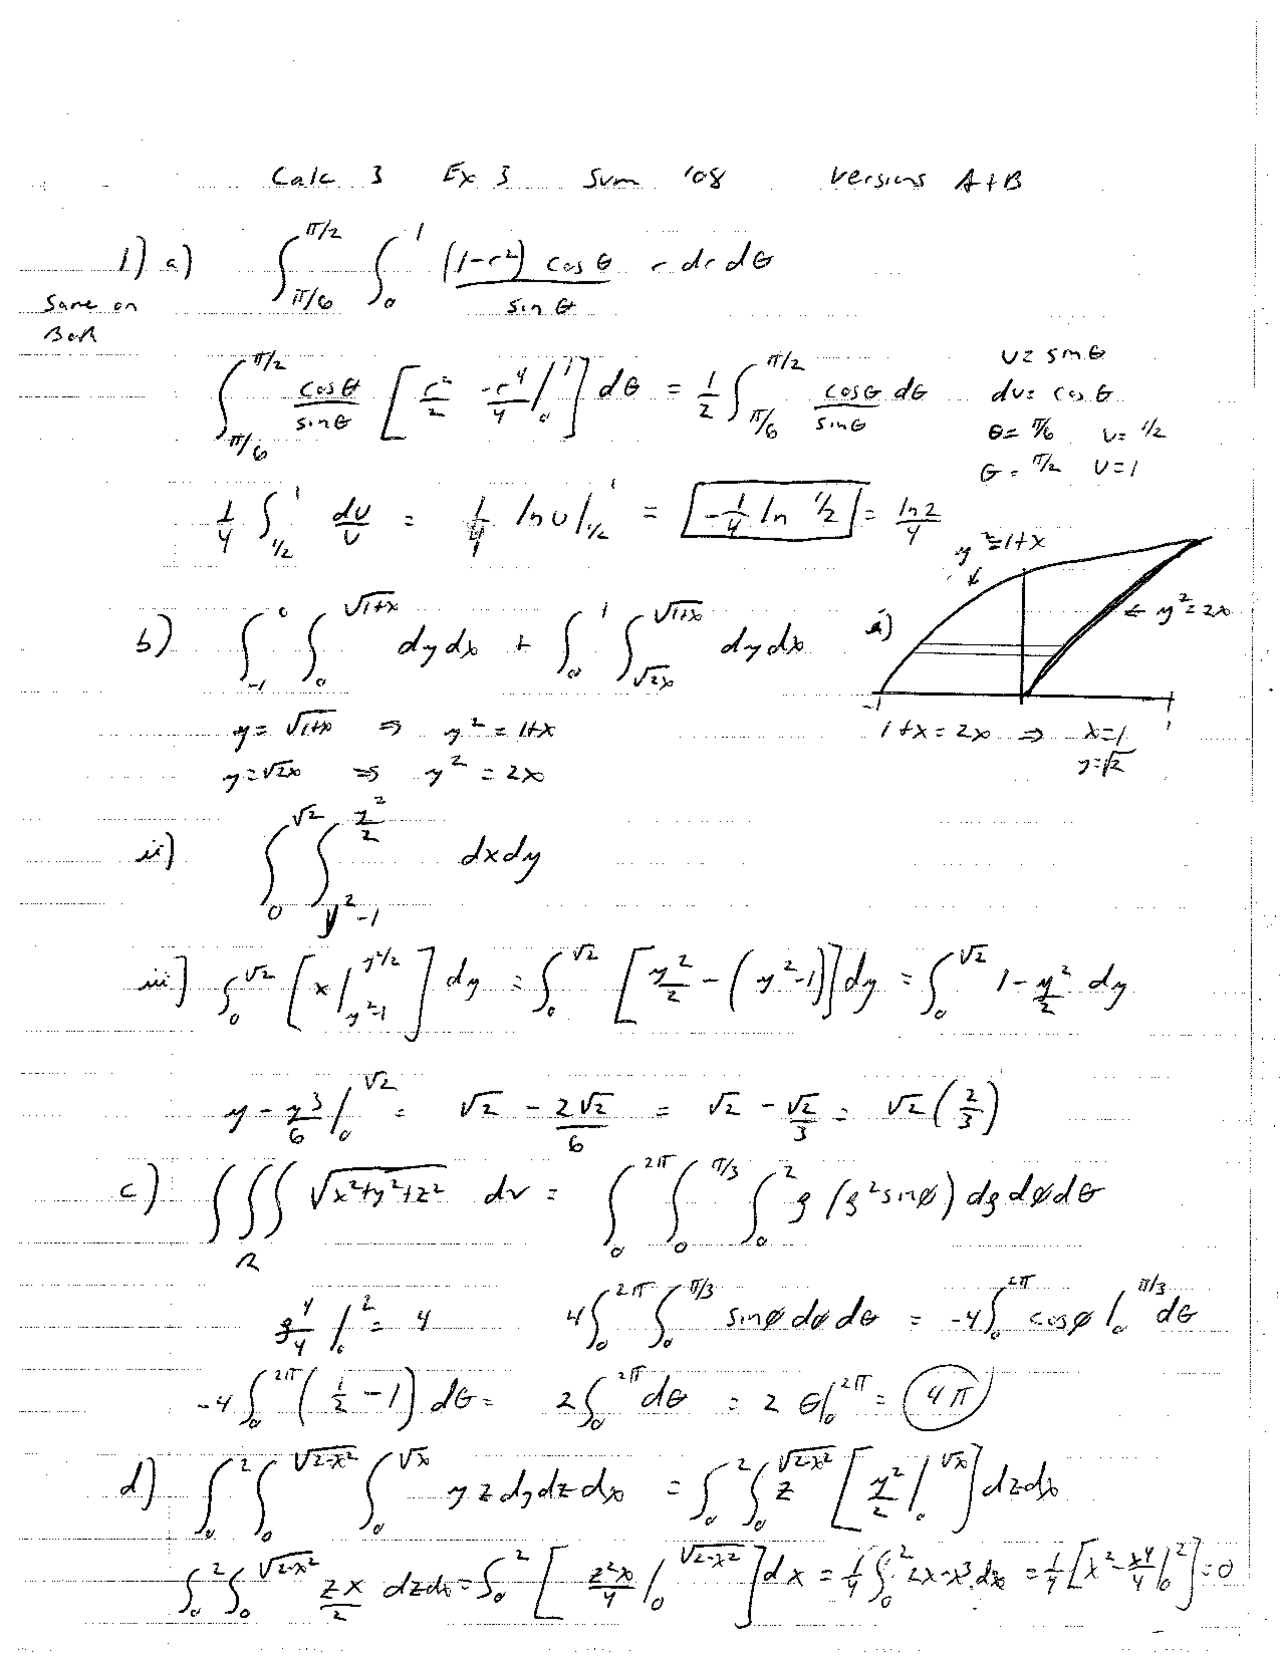 Calc 3 Ex 3 Sum '08 Versions A+B
1) a) ∫_{π/6}^{π/2} ∫_0^1 (1-r²) cosθ / sinθ r dr dθ
Same on
Both
∫_{π/6}^{π/2} cosθ/sinθ [r²/2 - r⁴/4 |_0^1] dθ = 1/2 ∫_{π/6}^{π/2} cosθ/sinθ dθ
u = sinθ
du = cosθ
θ = π/6 u = 1/2
θ = π/2 u = 1
1/4 ∫_{1/2}^1 du/u = 1/4 ln u |_{1/2}^1 = -1/4 ln 1/2 = ln2/4
b) ∫_{-1}^0 ∫_0^{√1+x} dy dx + ∫_0^1 ∫_{√2x}^{√1+x} dy dx
i) y² = 1+x
← y² = 2x
-1 1
y = √1+x ⇒ y² = 1+x
1+x = 2x ⇒ x = 1
y = √2
y = √2x ⇒ y² = 2x
ii) ∫_0^{√2} ∫_{y²-1}^{y²/2} dx dy
iii) ∫_0^{√2} [x |_{y²-1}^{y²/2}] dy = ∫_0^{√2} [y²/2 - (y²-1)] dy = ∫_0^{√2} 1 - y²/2 dy
y - y³/6 |_0^{√2} = √2 - 2√2/6 = √2 - √2/3 = √2 (2/3)
c) ∫∫∫_R √x²+y²+z² dv = ∫_0^{2π} ∫_0^{π/3} ∫_0^2 ρ (ρ² sinφ) dρ dφ dθ
ρ⁴/4 |_0^2 = 4 4∫_0^{2π} ∫_0^{π/3} sinφ dφ dθ = -4∫_0^{2π} cosφ |_0^{π/3} dθ
-4∫_0^{2π} (1/2 - 1) dθ = 2∫_0^{2π} dθ = 2 θ|_0^{2π} = 4π
d) ∫_0^2 ∫_0^{√2-x²} ∫_0^{√x} y z dy dz dx = ∫_0^2 ∫_0^{√2-x²} z [y²/2 |_0^{√x}] dz dx
∫_0^2 ∫_0^{√2-x²} zx/2 dz dx = ∫_0^2 [z²x/4 |_0^{√2-x²}] dx = 1/4 ∫_0^2 2x-x³ dx = 1/4 [x² - x⁴/4 |_0^2] = 0